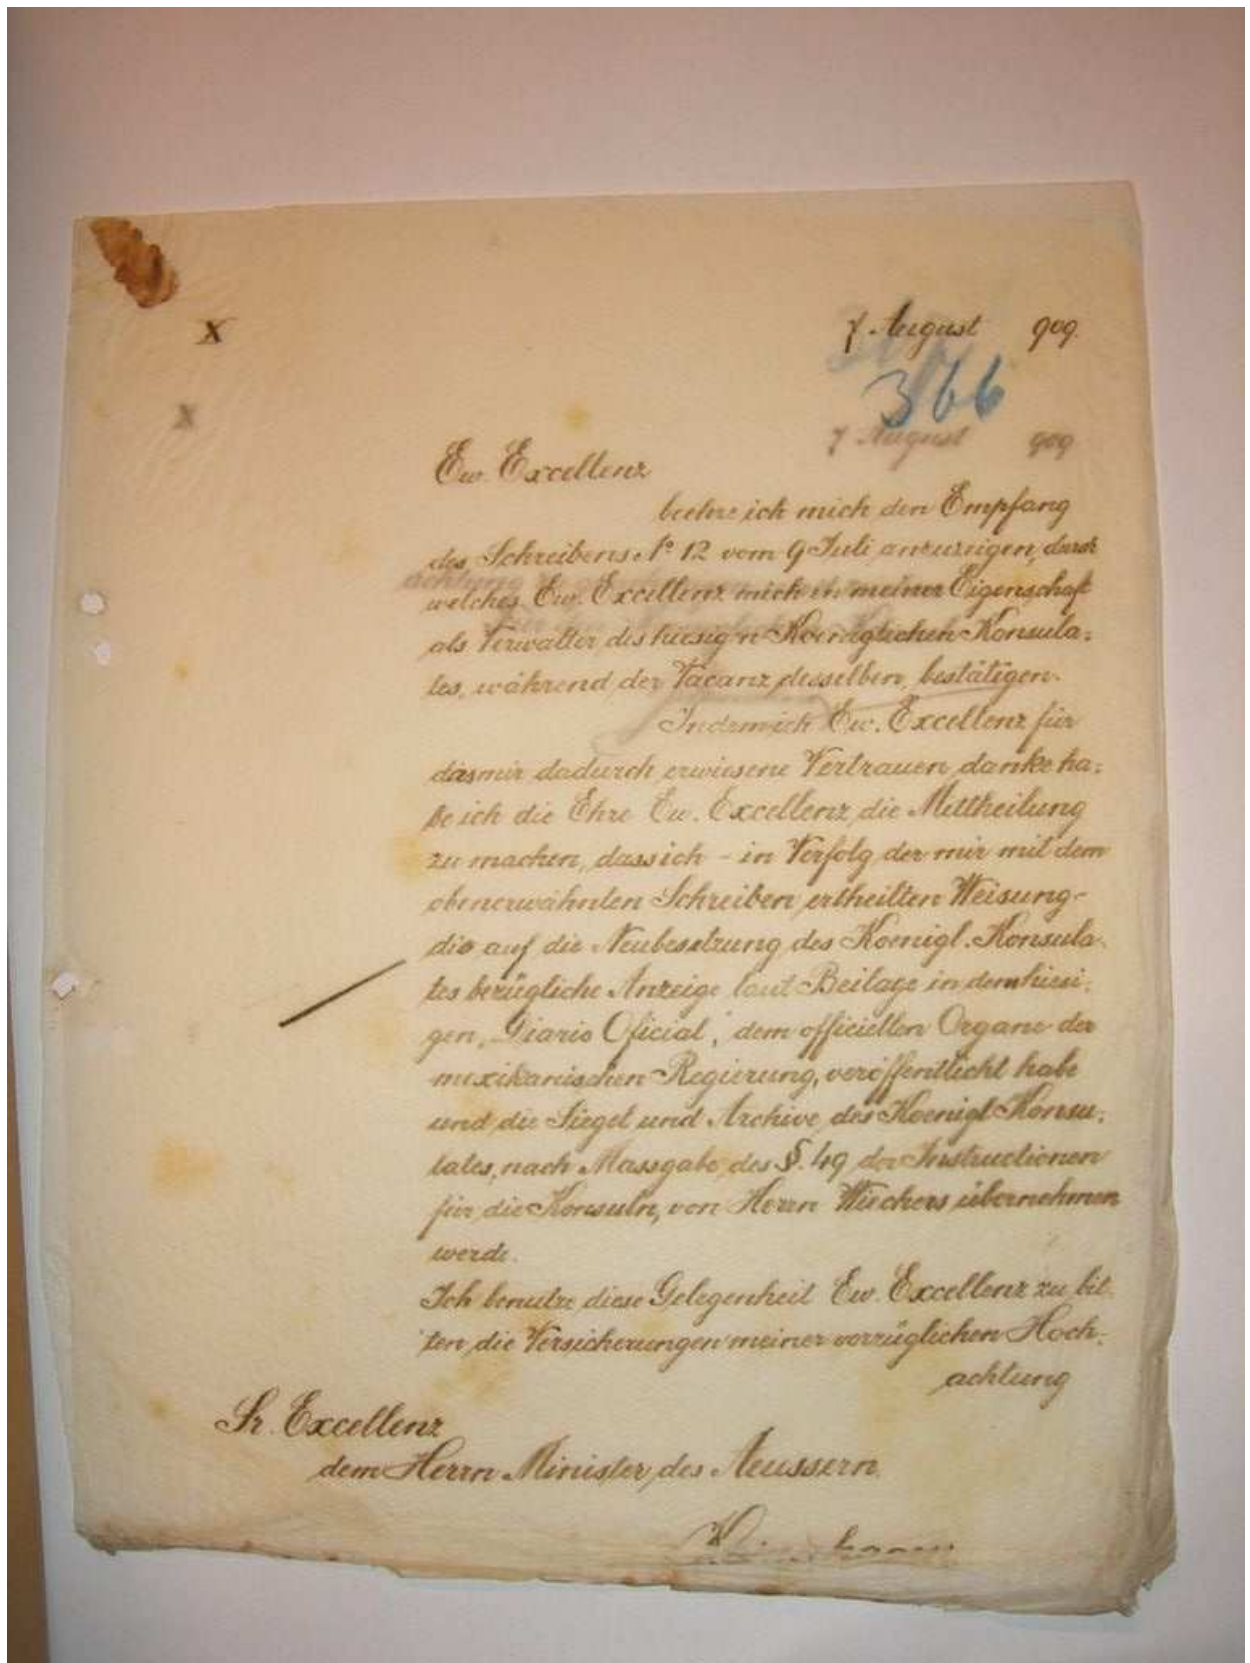 X
7. August 909.
366
X
7 August 909
Ew. Excellenz
beehre ich mich den Empfang
des Schreibens No 12 vom 9 Juli anzuzeigen, durch
achtung
welches Ew. Excellenz mich in meiner Eigenschaft
als Verwalter des hiesigen Koeniglichen Konsula-
tes, während der Vacanz desselben, bestätigen.
Indem ich Ew. Excellenz für
das mir dadurch erwiesene Vertrauen danke ha-
be ich die Ehre Ew. Excellenz die Mittheilung
zu machen, dass ich - in Verfolg der mir mit dem
obenerwähnten Schreiben ertheilten Weisung -
die auf die Neubesetzung des Koenigl. Konsula-
tes bezügliche Anzeige laut Beilage in dem hiesi-
gen „Diario Oficial", dem officiellen Organe der
mexikanischen Regierung, veröffentlicht habe
und die Siegel und Archive des Koenigl Konsu-
lates, nach Massgabe des §. 49 der Instructionen
für die Konsuln, von Herrn Wiechers übernehmen
werde.
Ich benutze diese Gelegenheit Ew. Excellenz zu bit-
ten die Versicherungen meiner vorzüglichen Hoch-
achtung
Sr. Excellenz
dem Herrn Minister des Aeussern.